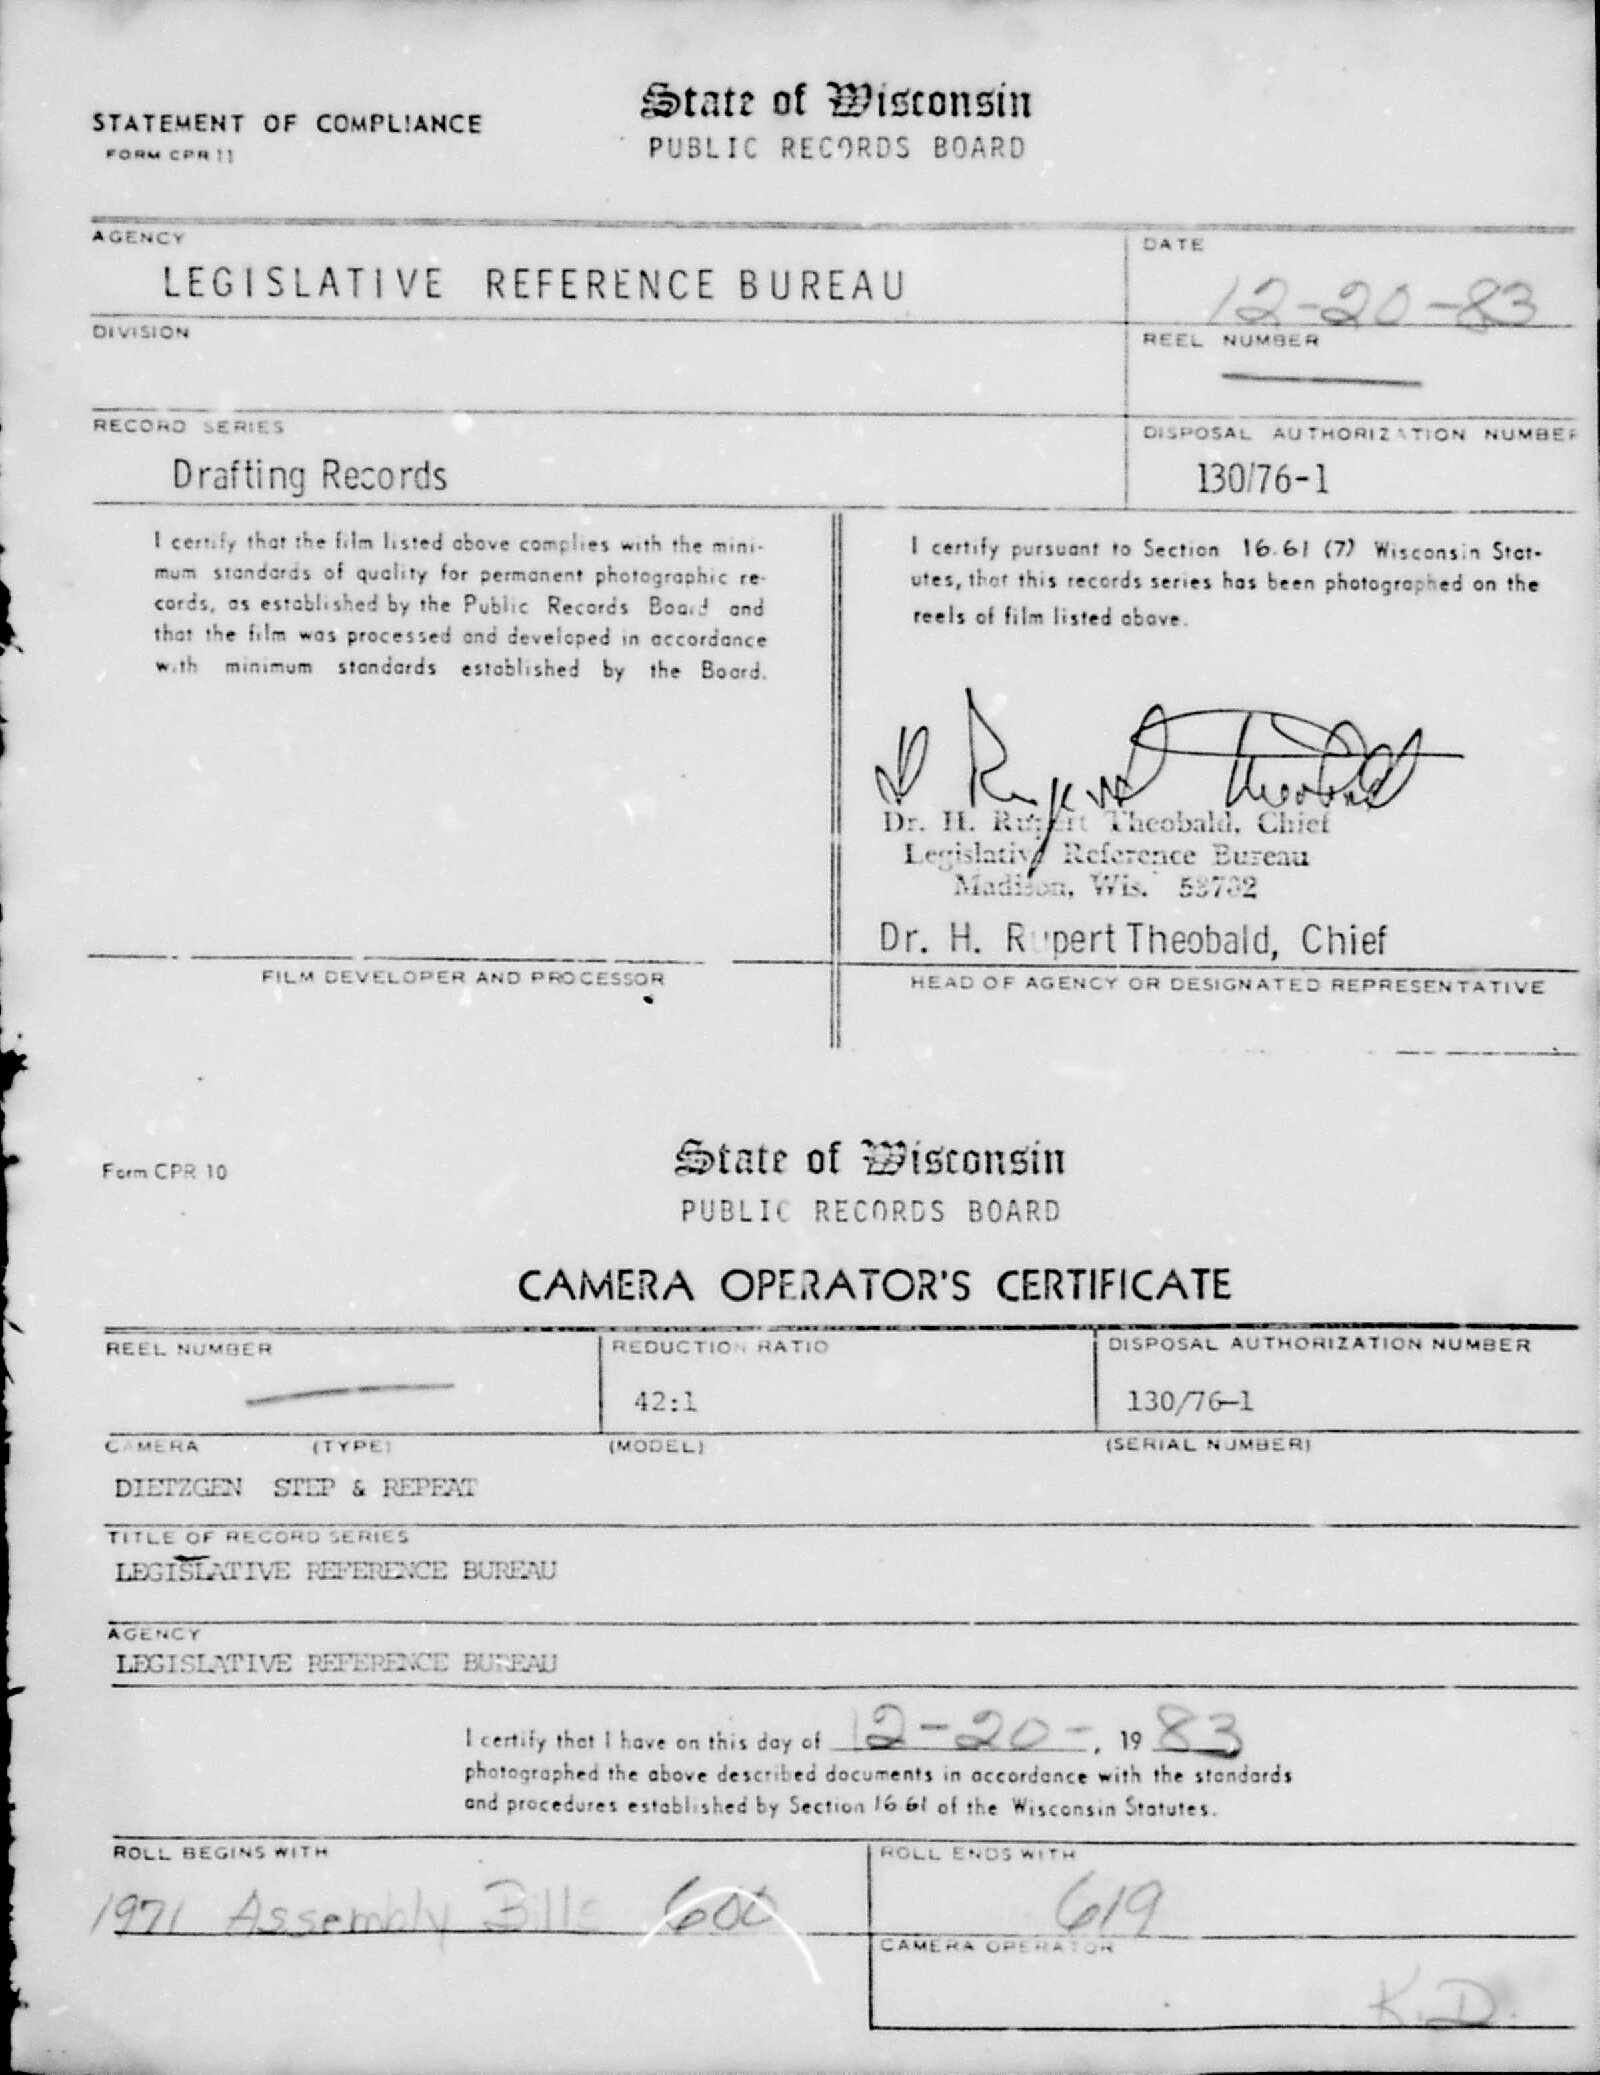 State of Wisconsin
STATEMENT OF COMPLIANCE
PUBLIC RECORDS BOARD
FORM CPR 11
AGENCY
DATE
LEGISLATIVE REFERENCE BUREAU
12-20-83
DIVISION
REEL NUMBER
RECORD SERIES
DISPOSAL AUTHORIZATION NUMBER
Drafting Records
130/76-1
I certify that the film listed above complies with the mini-
mum standards of quality for permanent photographic re-
cords, as established by the Public Records Board and
that the film was processed and developed in accordance
with minimum standards established by the Board.
I certify pursuant to Section 16.61 (7) Wisconsin Stat-
utes, that this records series has been photographed on the
reels of film listed above.
H Rupert Theobald
Dr. H. Rupert Theobald, Chief
Legislative Reference Bureau
Madison, Wis. 53702
Dr. H. Rupert Theobald, Chief
FILM DEVELOPER AND PROCESSOR
HEAD OF AGENCY OR DESIGNATED REPRESENTATIVE
State of Wisconsin
Form CPR 10
PUBLIC RECORDS BOARD
CAMERA OPERATOR'S CERTIFICATE
REEL NUMBER
REDUCTION RATIO
DISPOSAL AUTHORIZATION NUMBER
42:1
130/76-1
CAMERA (TYPE)
(MODEL)
(SERIAL NUMBER)
DIETZGEN STEP & REPEAT
TITLE OF RECORD SERIES
LEGISLATIVE REFERENCE BUREAU
AGENCY
LEGISLATIVE REFERENCE BUREAU
I certify that I have on this day of 12-20-, 1983
photographed the above described documents in accordance with the standards
and procedures established by Section 16 61 of the Wisconsin Statutes.
ROLL BEGINS WITH
ROLL ENDS WITH
1971 Assembly Bills 600
619
CAMERA OPERATOR
K.D.